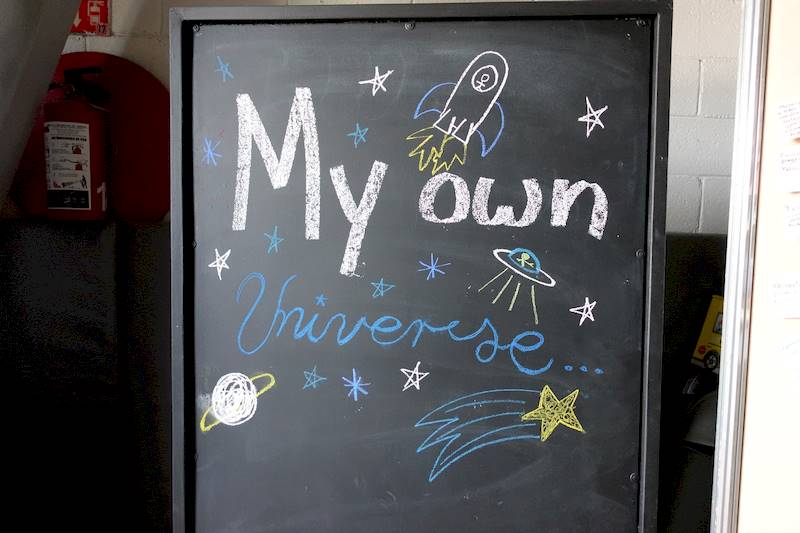 My own
Universe...